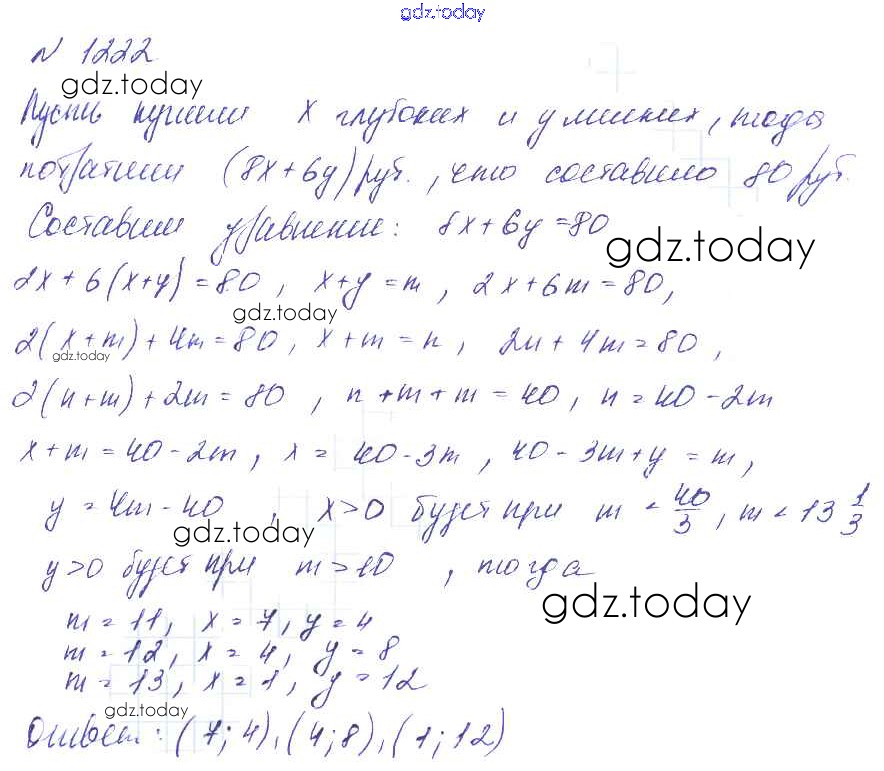 gdz.today
N 1222
gdz.today
Пусть купили x глубоких и y мелких, тогда
потратили (8x+6y) руб., что составило 80 руб.
Составим уравнение: 8x+6y=80
gdz.today
2x+6(x+y)=80, x+y=m, 2x+6m=80,
gdz.today
2(x+m)+4m=80, x+m=n, 2n+4m=80,
gdz.today
2(n+m)+2m=80, n+m+m=40, n=40-2m
x+m=40-2m, x=40-3m, 40-3m+y=m,
y=4m-40, x>0 будет при m<40/3, m<13 1/3
gdz.today
y>0 будет при m>10, тогда
gdz.today
m=11, x=7, y=4
m=12, x=4, y=8
m=13, x=1, y=12
gdz.today
Ответ: (7;4), (4;8), (1;12)